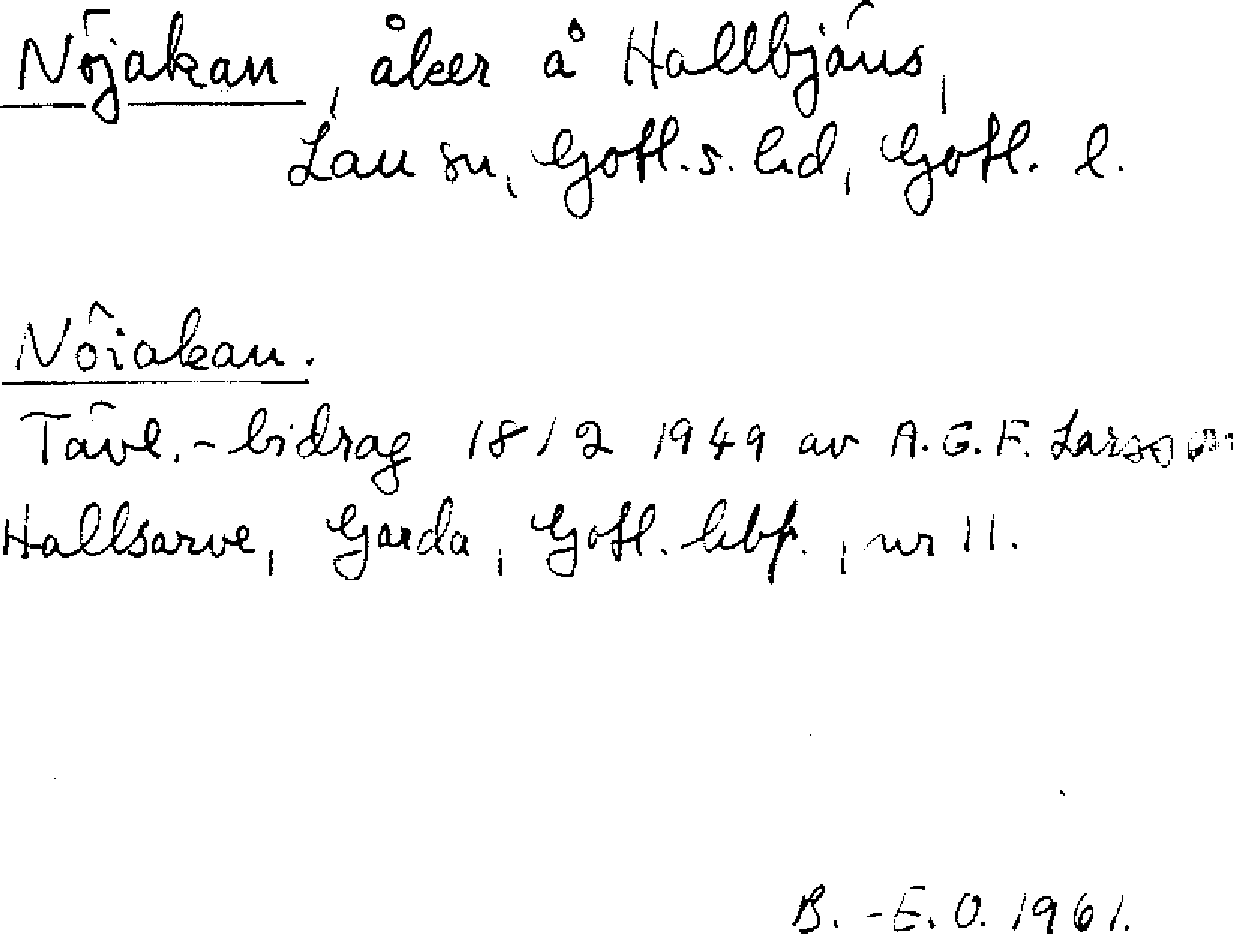 Nöjakan, åker å Hallbjäns,
Lau sn, Gotl. s. hd, Gotl. l.
Nôiakan.
Tävl.-bidrag 18/2 1949 av A.G.F. Larsson
Hallsarve, Garda, Gotl. hbf., nr 11.
B.-E.O. 1961.